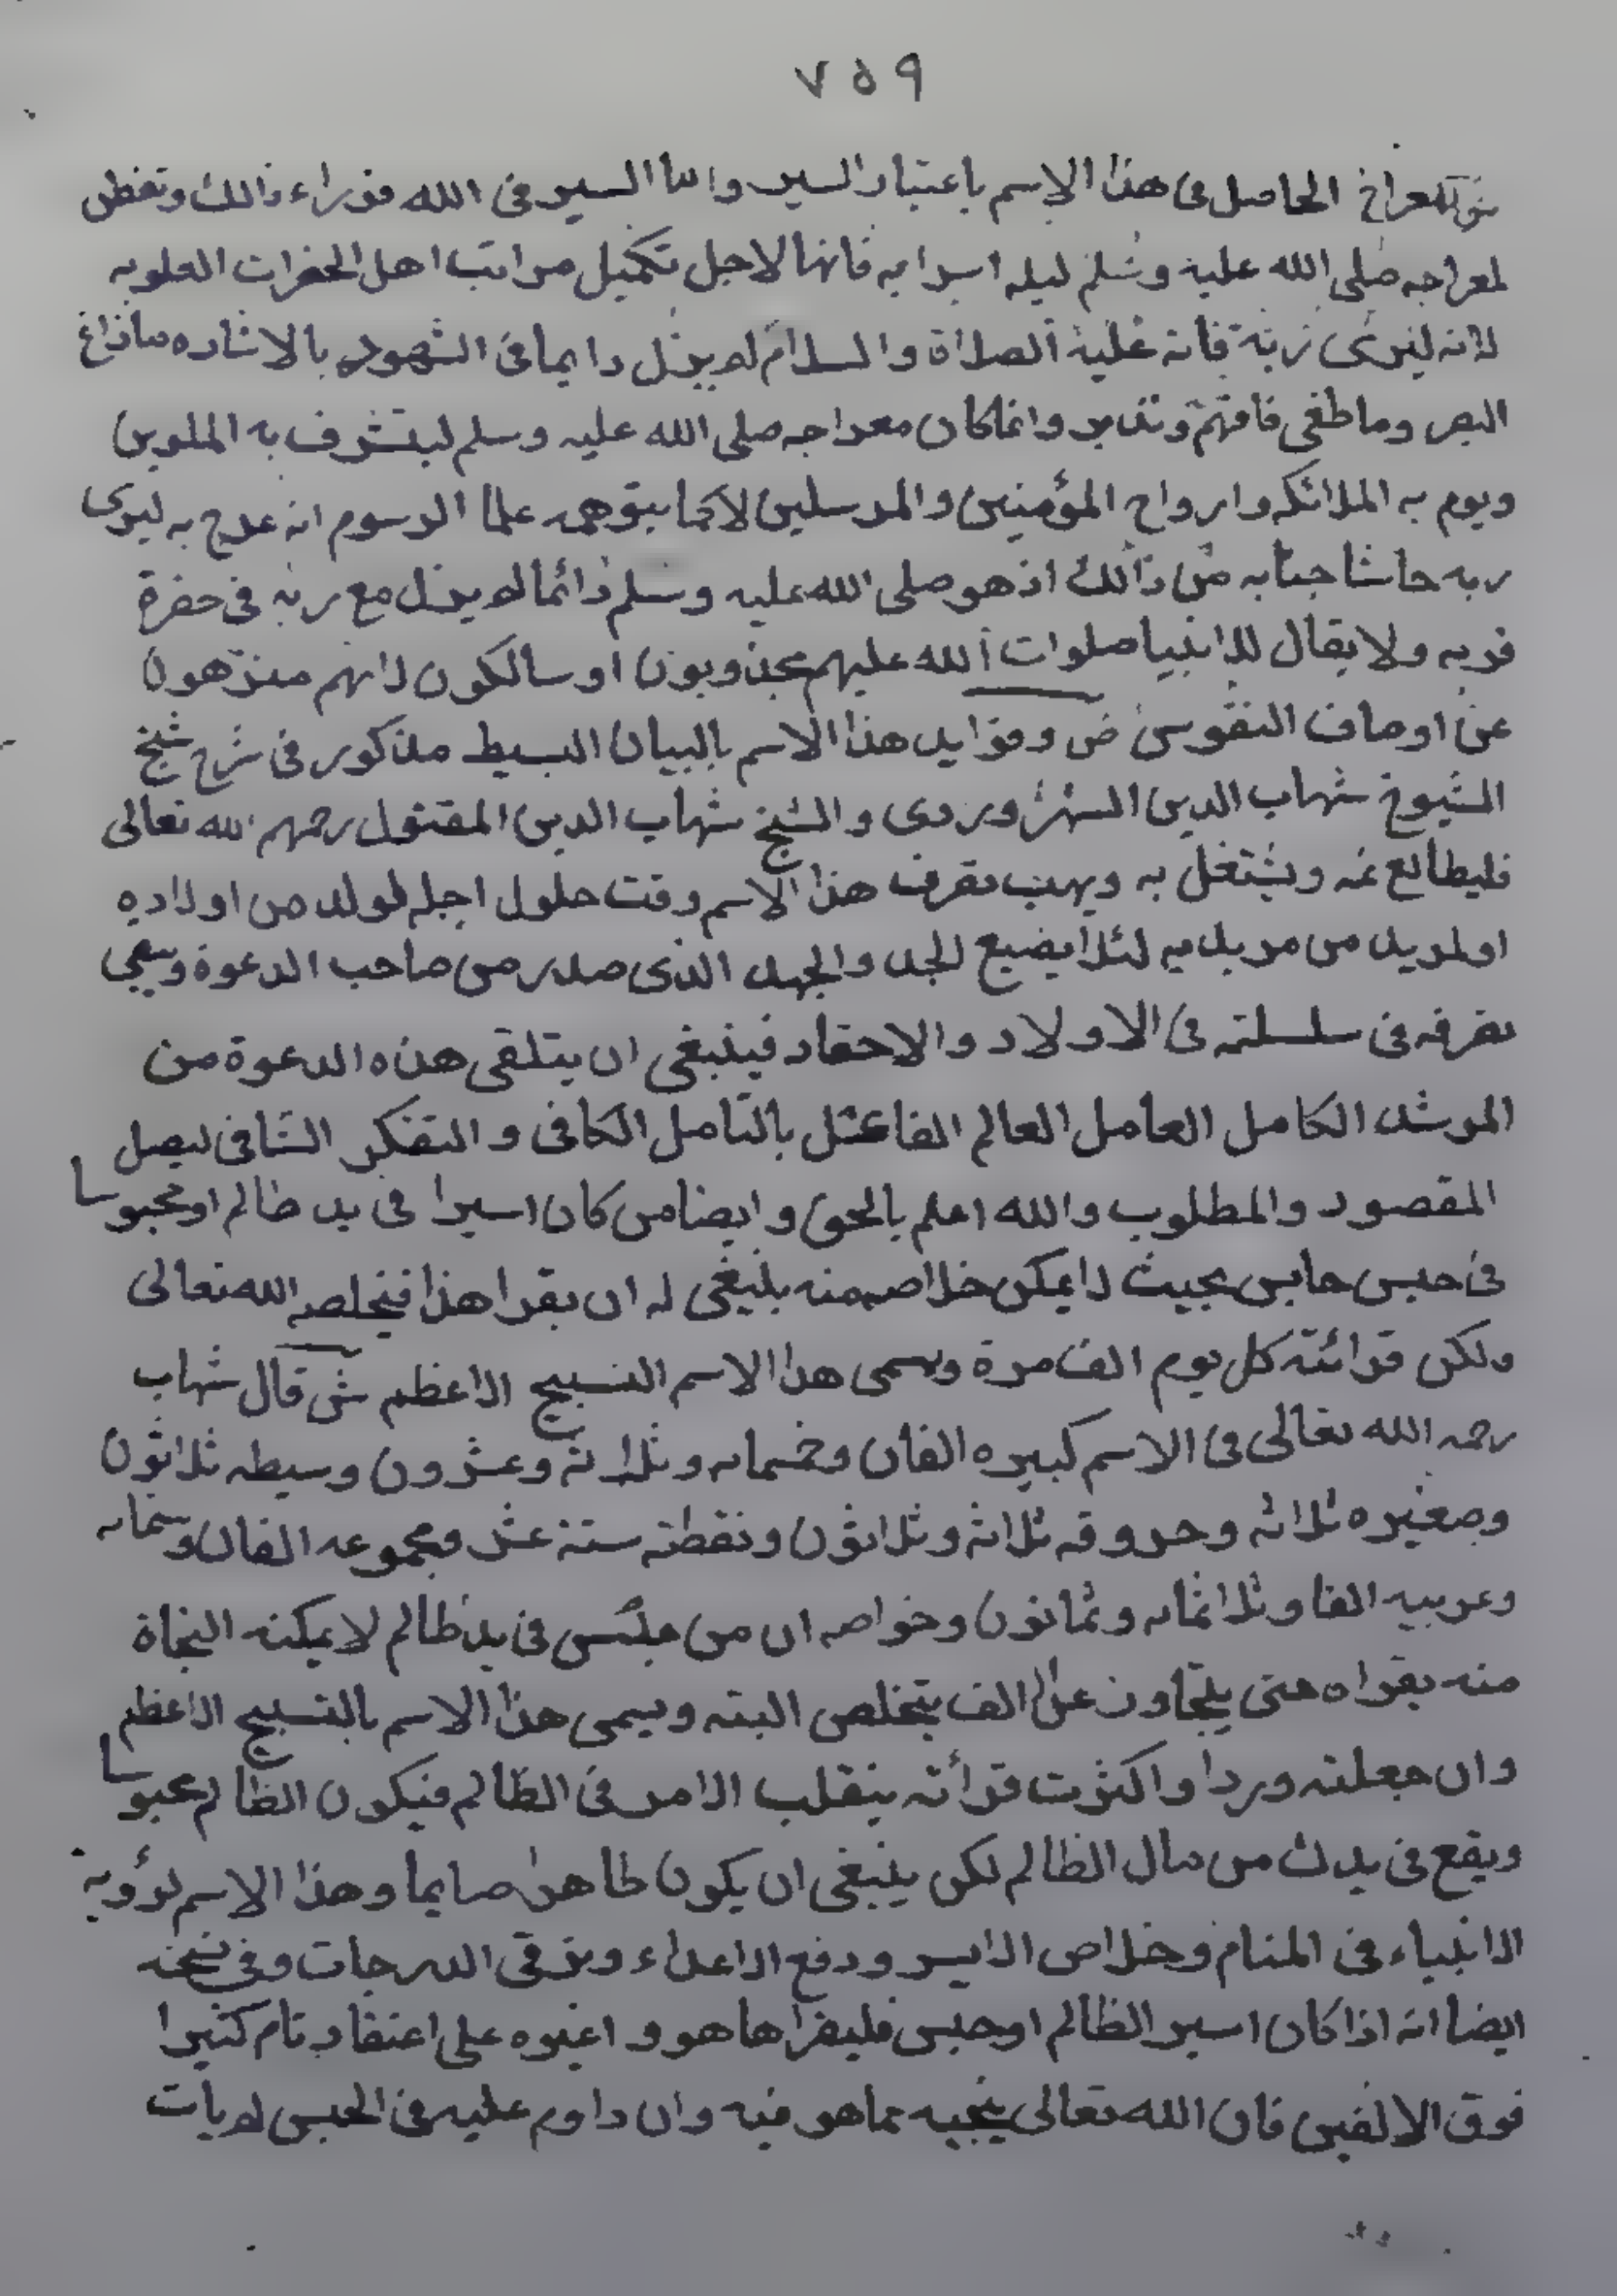 ٧٥٩
الحاصل فى هذا الاسم باعتبار السير واما السير فى الله فوراء ذالك وتفطن
لمعراجه صلى الله عليه وسلم ليله اسرايه فانها لاجل تكميل مراتب اهل الحضرات العلويه
لا انه ليرى ربه فانه عليه الصلاة والسلام لم يزل دايما فى الشهود بالاشاره مازاغ
البصر وما طغى فافهم وتدبر وانما كان معراجه صلى الله عليه وسلم ليتشرف به الملوين
ويوم به الملائكه وارواح المؤمنين والمرسلين لا كما يتوهمه علما الرسوم انه عرج به ليرى
ربه حاشا جنابه من ذالك اذ هو صلى الله عليه وسلم دائما لم يزل مع ربه فى حضرة
قربه ولا يقال للانبيا صلوات الله عليهم مجذوبون او سالكون لانهم منزهون
عن اوصاف النفوس ض وفوايد هذا الاسم بالبيان البسيط مذكور فى شرح شيخ
الشيوخ شهاب الدين السهروردى والشيخ شهاب الدين المقتول رحمهم الله تعالى
فليطالع ثمه ويشتغل به ويهب تصرف هذا الاسم وقت حلول اجله لولد من اولاده
او لمريد من مريديه لئلا يضيع الجد والجهد الذى صدر من صاحب الدعوة ويبقى
تصرفه فى سلسلته فى الاولاد والاحفاد فينبغى ان يتلقى هذه الدعوة من
المرشد الكامل العامل العالم الفاضل بالتامل الكافى والتفكر الشافى ليصل
المقصود والمطلوب والله اعلم بالحق وايضا من كان اسيرا فى يد ظالم او محبوسا
فى حبس حابس بحيث لا يمكن خلاصه منه ينبغى له ان يقرا هذا فيخلصه الله تعالى
ولكن قرائته كل يوم الف مرة ويسمى هذا الاسم التسبيح الاعظم ش قال شهاب
رحمه الله تعالى فى الاسم كبيره الفان وخمسمايه وثلاثة وعشرون وسيطه ثلاثون
وصغيره ثلاثه وحروفه ثلاثة وثلاثون ونقطته ستة عشر ومجموعه الفان وستمايه
وعربيه الفا وثلاثمايه وثمانون وخواصه ان من حبس فى يد ظالم لا يمكنه النجاة
منه يقراه حتى يتجاوز على الف يتخلص البته ويسمى هذا الاسم بالتسبيح الاعظم
وان جعلته وردا واكثرت قرأته ينقلب الامر فى الظالم فيكون الظالم محبوسا
ويقع فى يدك من مال الظالم لكن ينبغى ان يكون طاهرا صايما وهذا الاسم لرؤية
الانبياء فى المنام وخلاص الاسير ودفع الاعداء وترقى الدرجات وفى نسخه
ايضا انه اذا كان اسير الظالم او حبس فليقراها هو و اغيره على اعتقاد تام كثيرا
فوق الالفين فان الله تعالى ينجيه مما هو فيه وان داوم عليه فى الحبس لم يأت